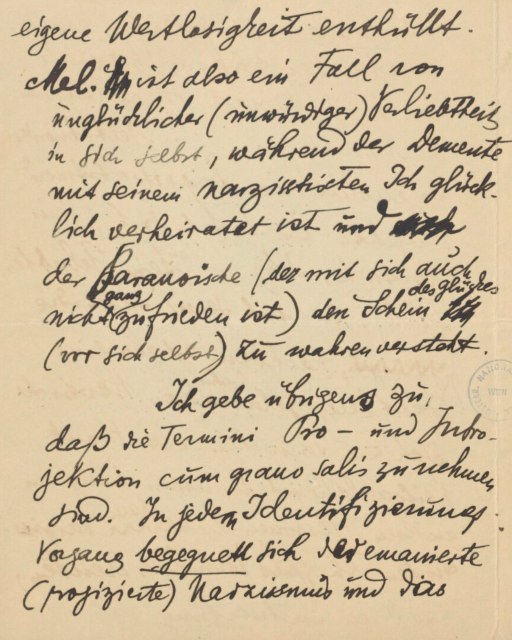 eigene Wertlosigkeit enthüllt.
Mel. ist also ein Fall von
unglücklicher (unwürdiger) Verliebtheit
in sich selbst, während der Demente
mit seinem narzisstischen Ich glück-
lich verheiratet ist und
der Paranoische (der mit sich auch
nicht ganz zufrieden ist) den Schein des Glückes
(vor sich selbst) zu wahren versteht.
Ich gebe übrigens zu,
daß die Termini Pro- und Intro-
jektion cum grano salis zu nehmen
sind. In jedem Identifizierungs-
Vorgang begegnet sich der emanierte
(projizierte) Narzissmus und das